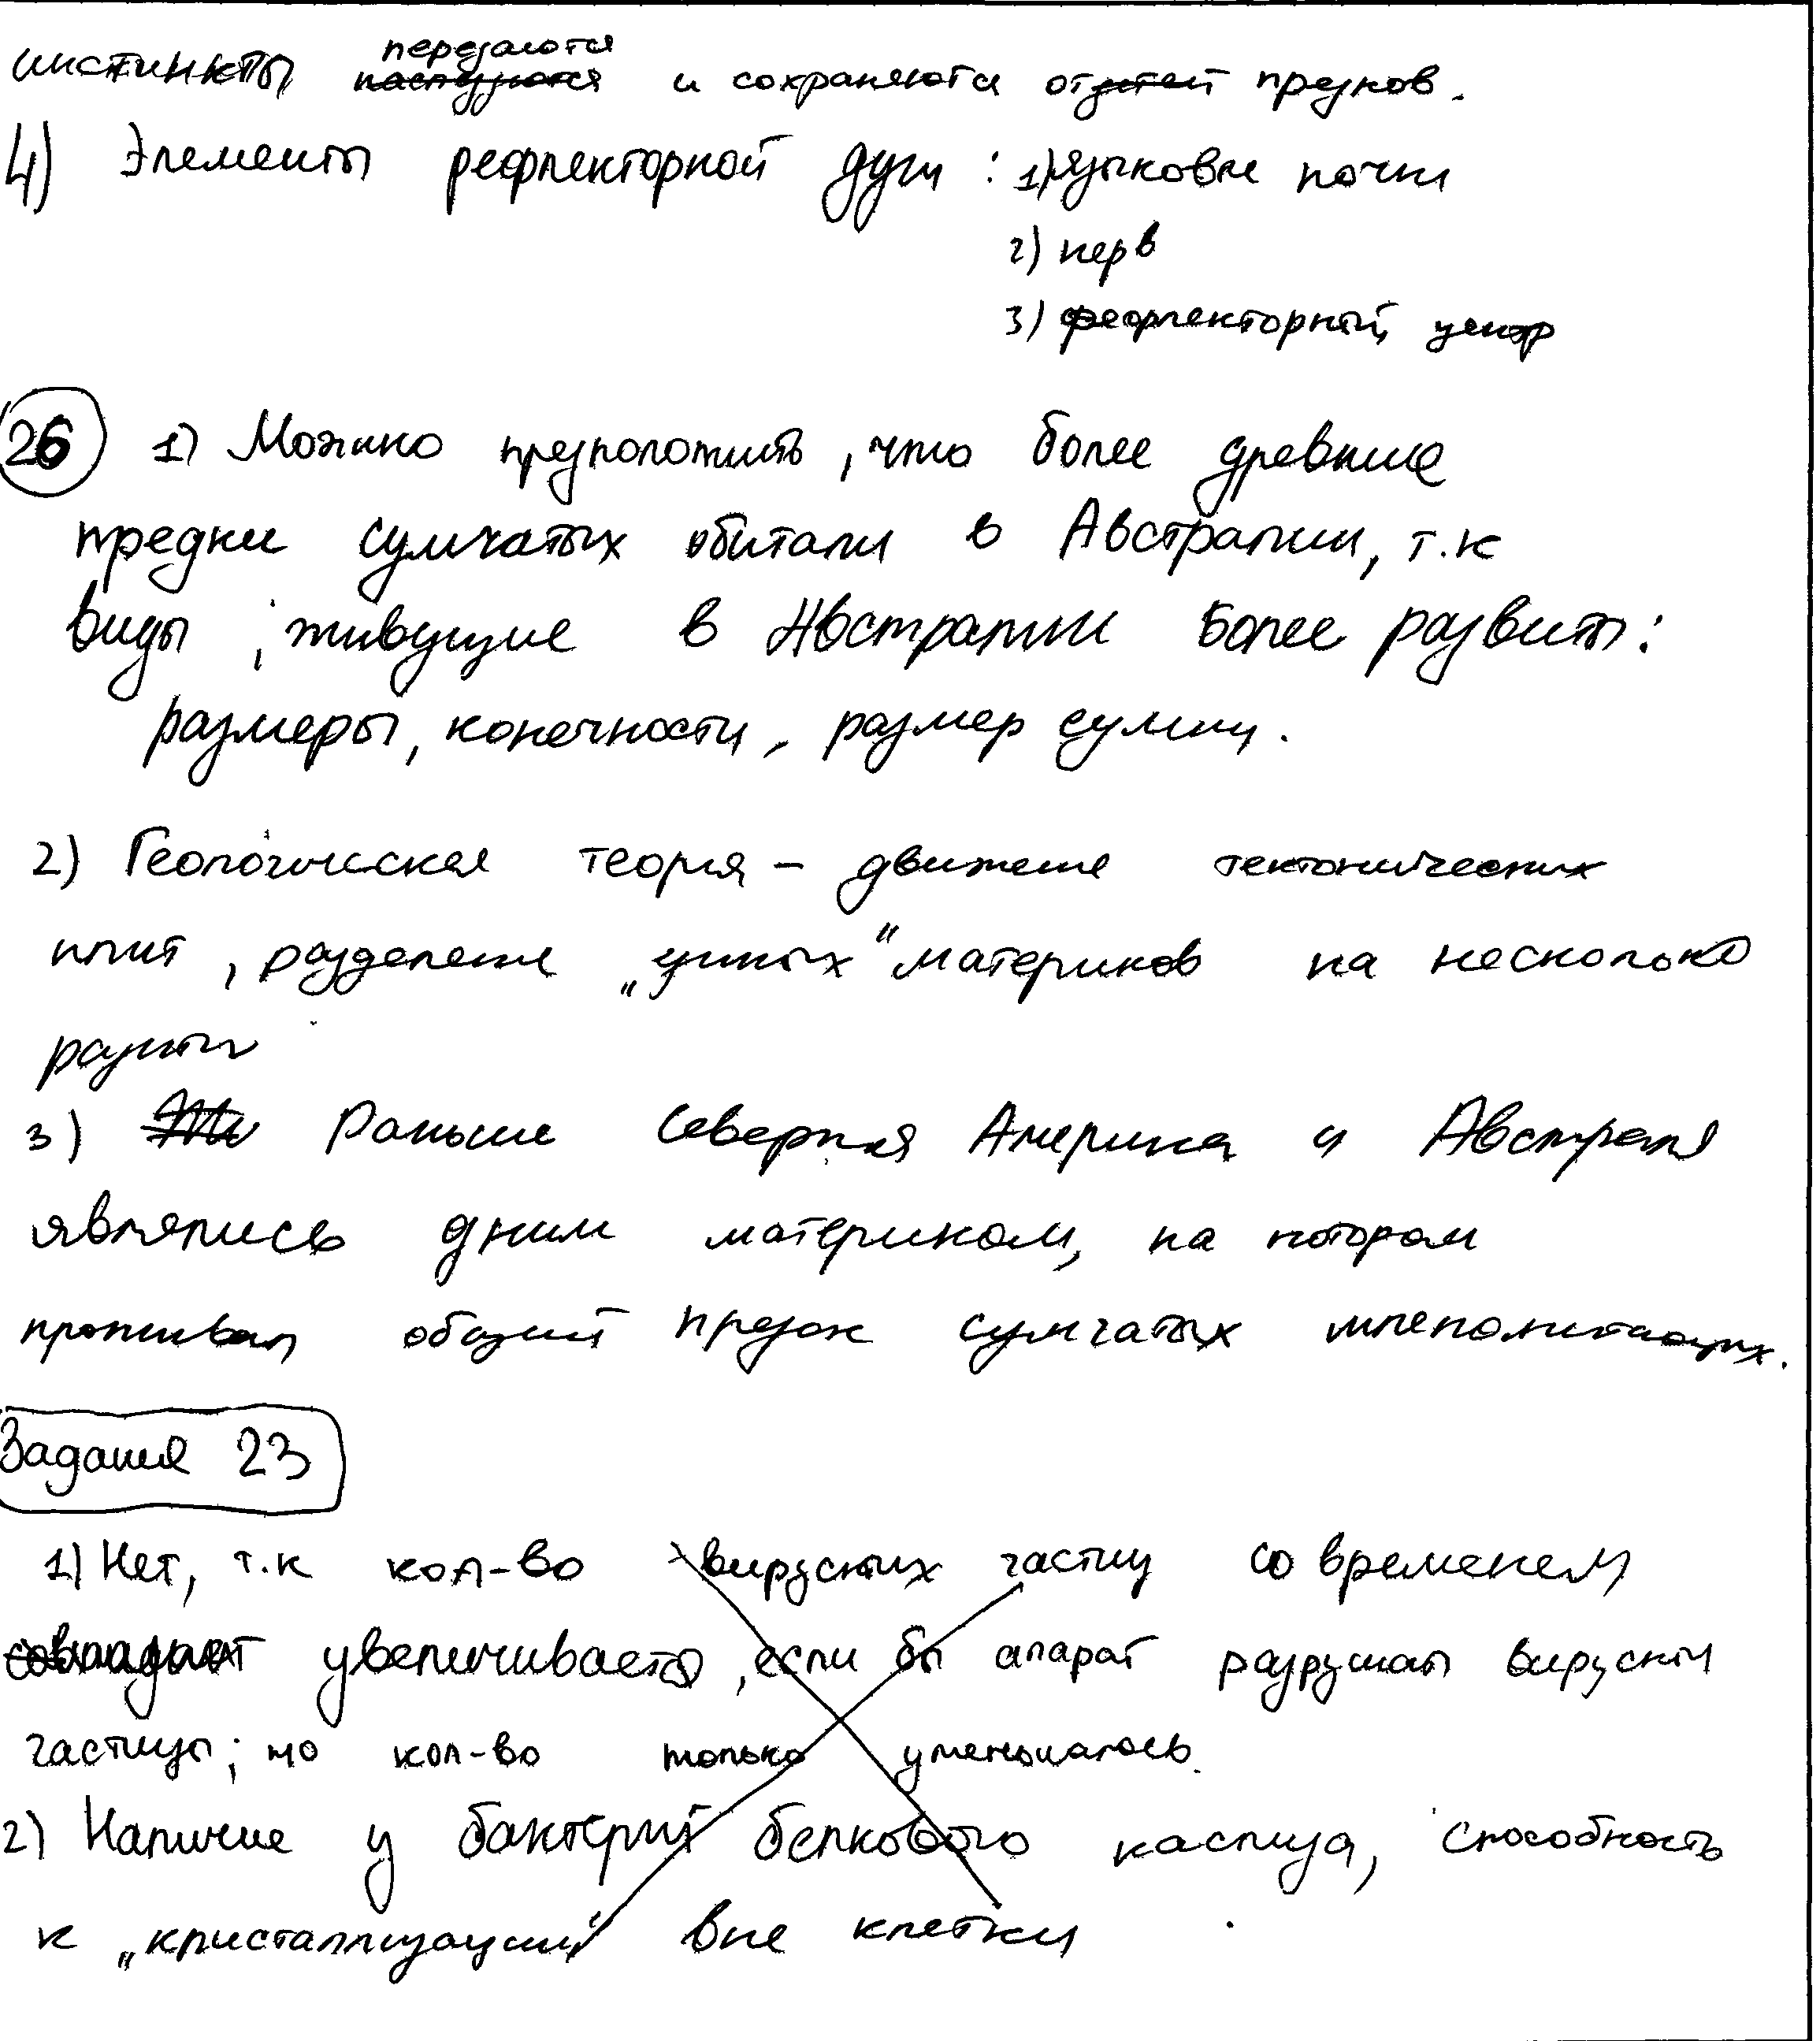 передаются
инстинкты наследуются и сохраняются от детей предков.
4) Элементы рефлекторной дуги: 1) языковые почки
2) нерв
3) рефлекторный центр
26 1) Можно предположить, что более древние
предки сумчатых обитали в Австралии, т.к
виды, живущие в Австралии более развиты:
размеры, конечности, размер сумки.
2) Геологическая теория – движение тектонических
плит, разделение „целых" материков на несколько
разных
3) Раньше Северная Америка и Австралия
являлись одним материком, на котором
проживал общий предок сумчатых млекопитающих.
Задание 23
1) Нет, т.к кол-во вирусных частиц со временем
совпадает увеличивается, если бы апарат разрушал вирусные
частицы; то кол-во только уменьшалось.
2) Наличие у бактерий белкового каспида, способность
к „кристаллизации" вне клетки